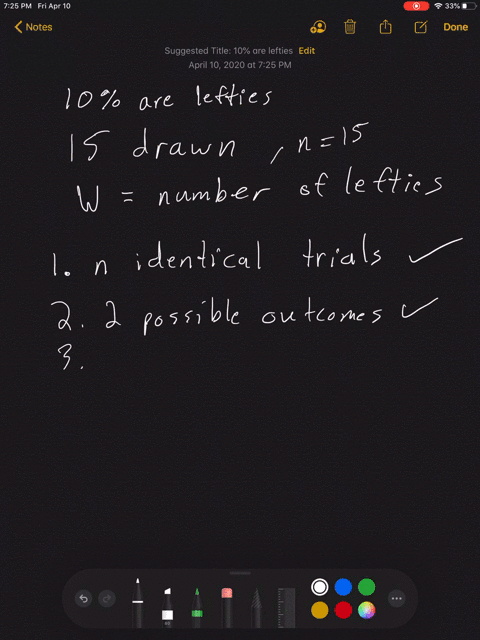 7:25 PM Fri Apr 10 33%
Notes Done
Suggested Title: 10% are lefties Edit
April 10, 2020 at 7:25 PM
10% are lefties
15 drawn , n = 15
W = number of lefties
1. n identical trials ✓
2. 2 possible outcomes ✓
3.